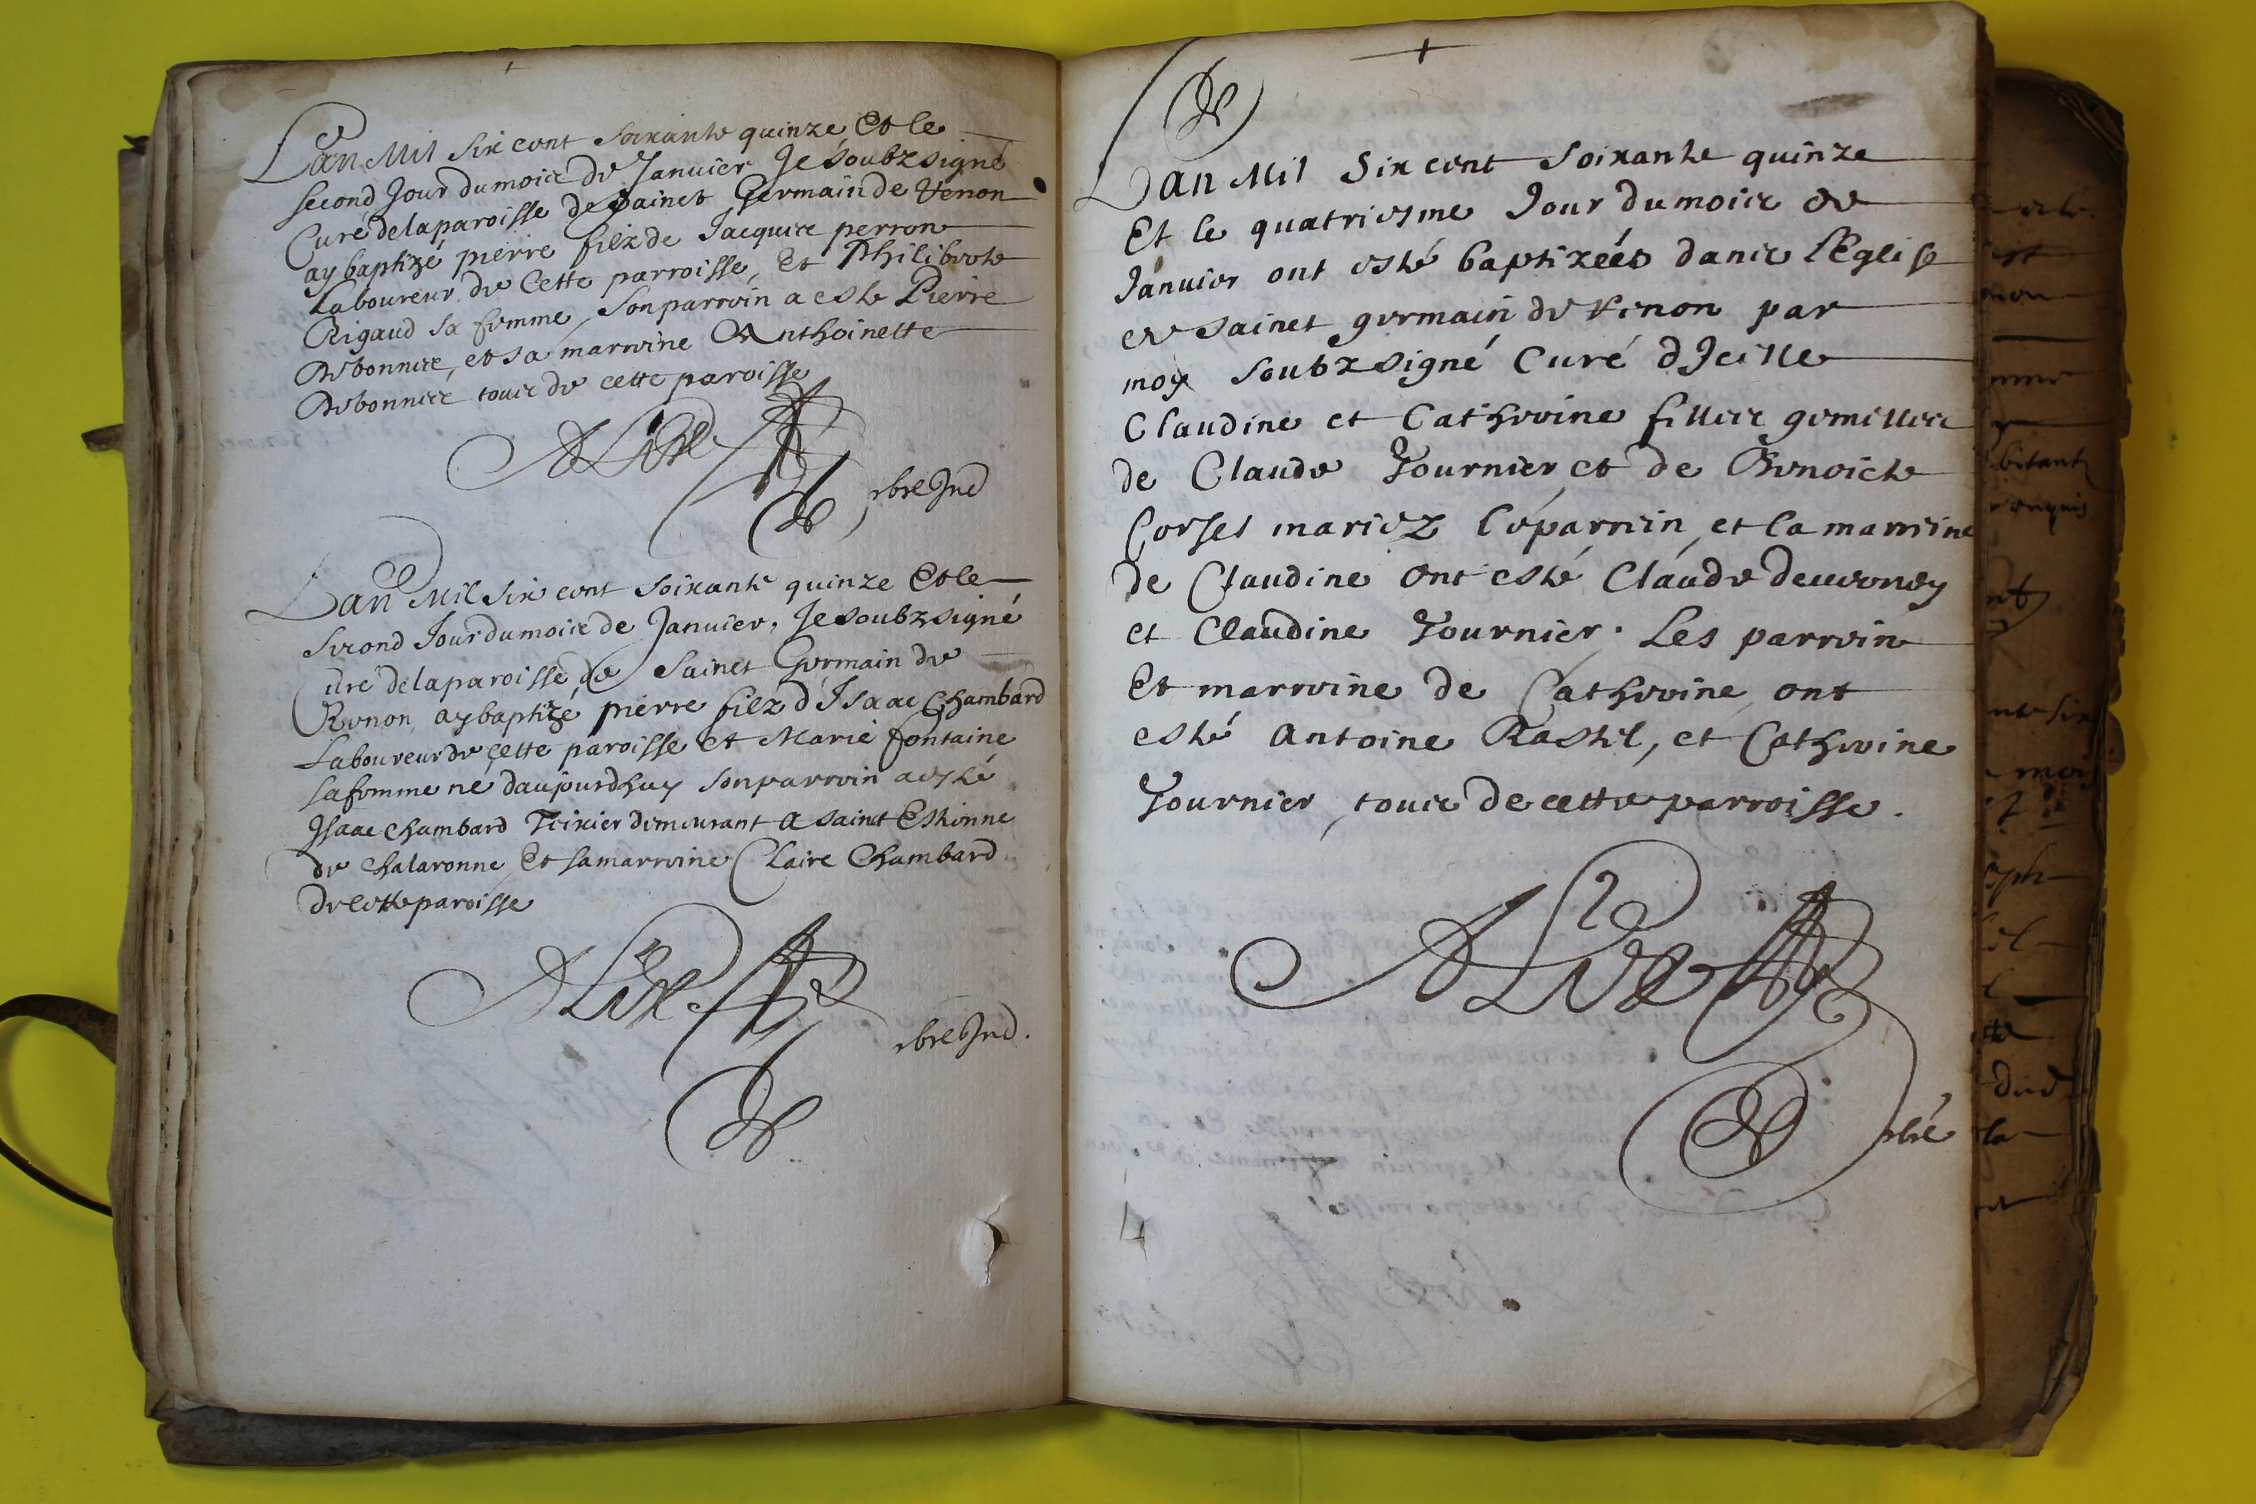 L'an Mil Six cent soixante quinze Et le
second Jour du mois de Janvier Je soubzsigné
Curé de la paroisse de sainct Germain de Renon
ay baptizé pierre filz de Jacques perron
Laboureur de Cette parroisse, Et Philiberte
Rigaud sa femme, son parrein a este Pierre
Debonnere, et sa marreine Anthoinette
Debonnere tous de cette paroisse
Livre
L'an Mil Six cent soixante quinze Et le
second Jour du mois de Janvier, Je soubzsigné
Curé de la paroisse de Sainct Germain de
Renon ay baptizé pierre filz d'Isaac Chambard
Laboureur de cette paroisse et Marie fontaine
sa femme né d'aujourdhuy son parrein a esté
Isaac Chambard Teixier demeurant a sainct Estienne
de Chalaronne, Et sa marreine Claire Chambard
de cette paroisse
L'an Mil Six cent Soixante quinze
Et le quatriesme Jour du mois de
Janvier ont esté baptizées dans l'Eglise
de Sainct germain de Renon par
moy Soubzsigné Curé d'Icelle
Claudine et Catherine filles gemelles
de Claude Tournier, et de Benoicte
Corsel mariez Le parrein, et la marreine
de Claudine ont esté Claude deuverney
et Claudine Tournier. Les parrein
Et marreine de Catherine ont
esté Antoine Rastel, et Catherine
Tournier, tous de cette parroisse.